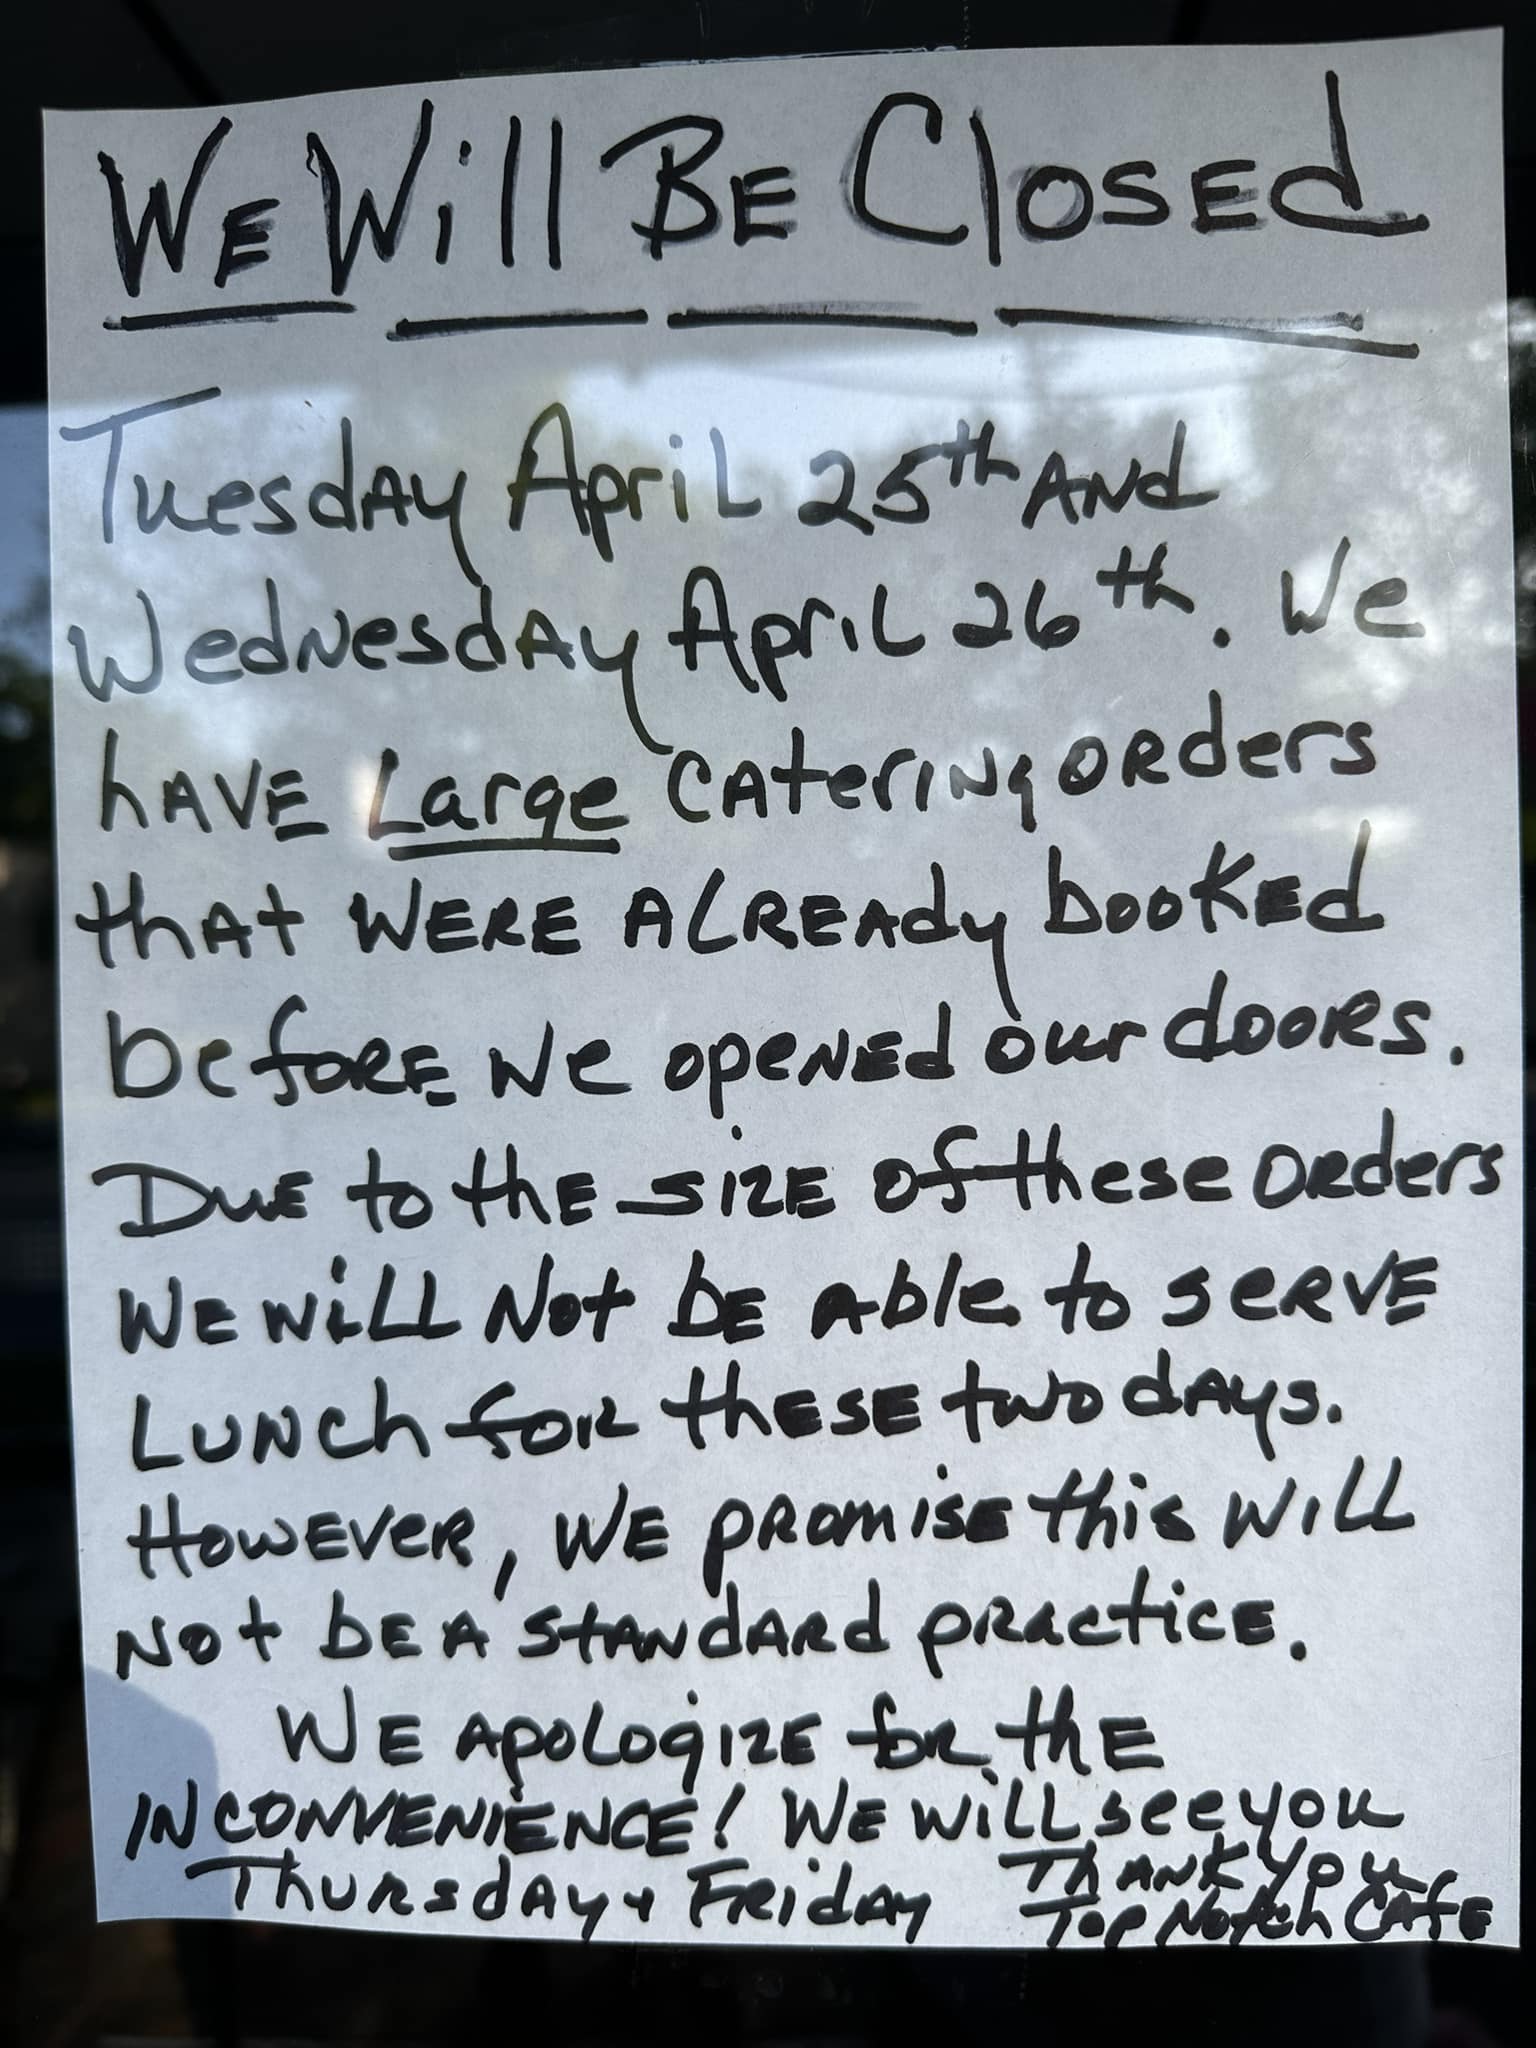 We Will Be Closed
Tuesday April 25th And
Wednesday April 26th. We
have Large catering orders
that were already booked
before we opened our doors.
Due to the size of these orders
we will not be able to serve
Lunch for these two days.
However, we promise this will
not be a standard practice.
We apologize for the
inconvenience! We will see you
Thursday + Friday
Thank you
Top Notch Cafe